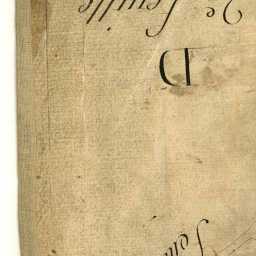 2e feuille
D